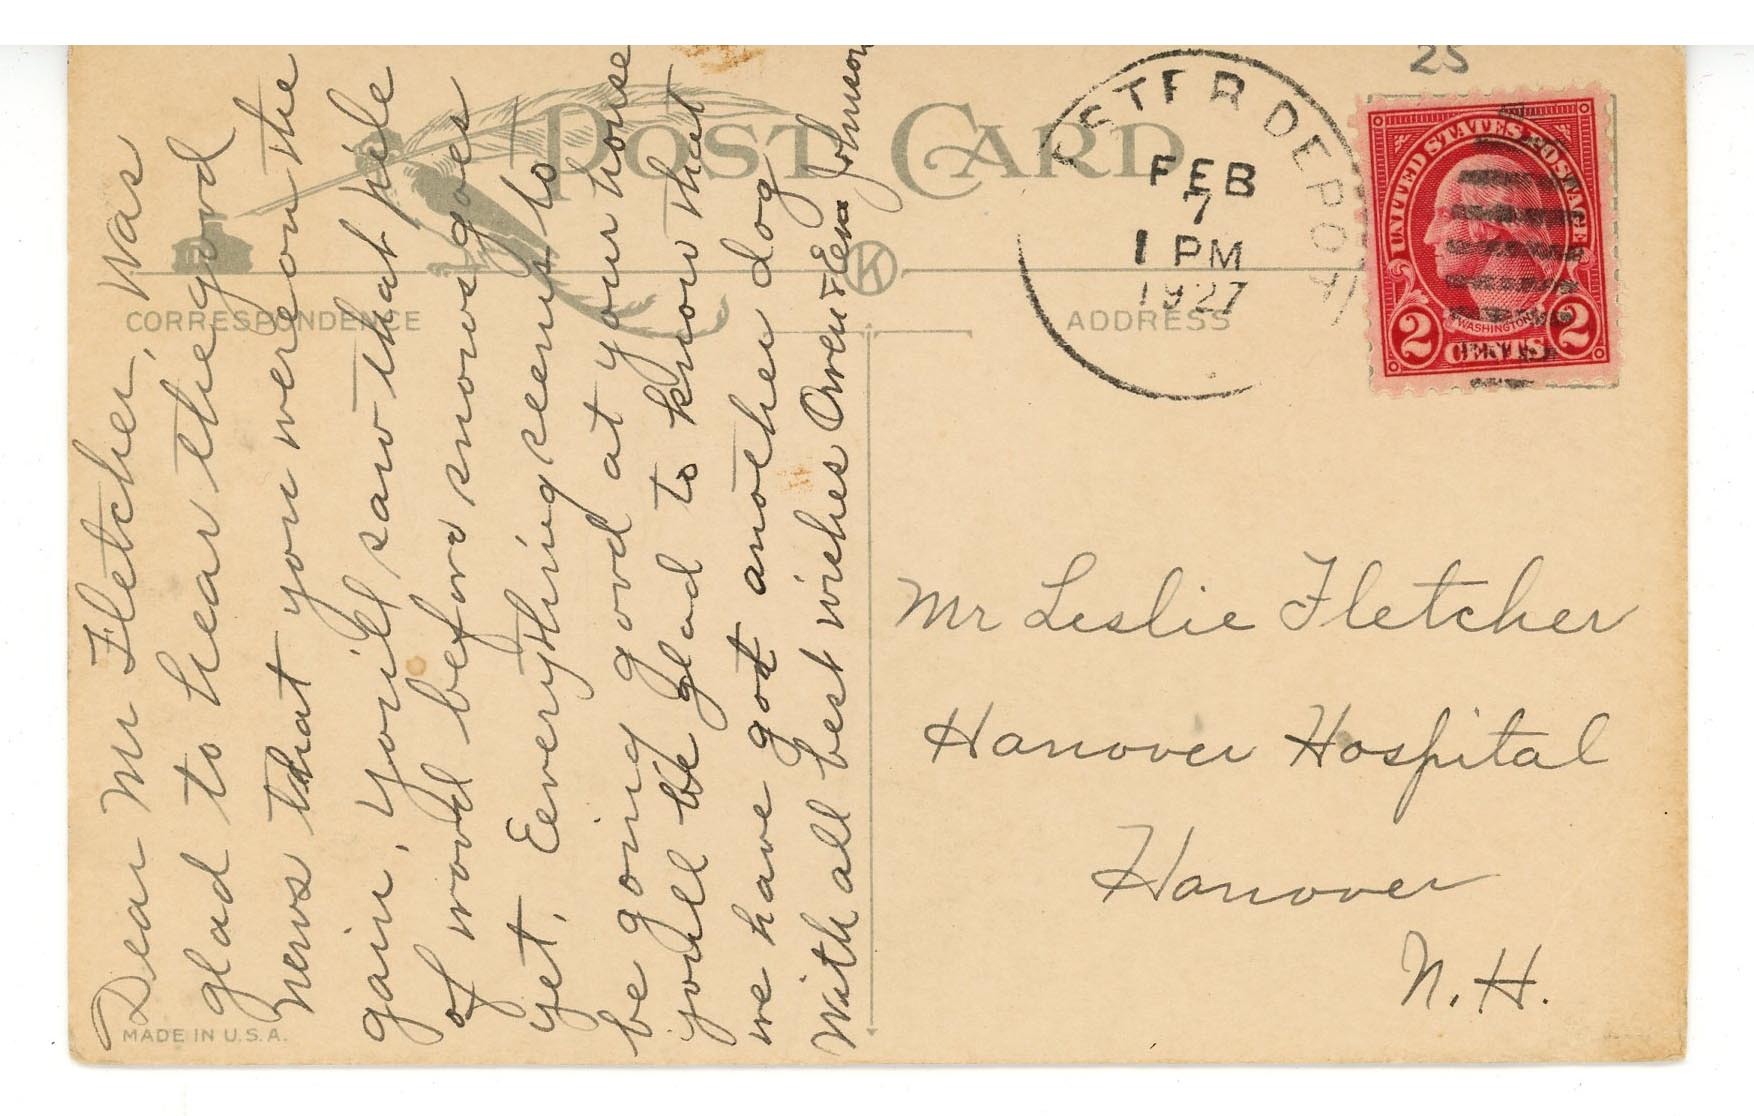 POST CARD
CORRESPONDENCE
ADDRESS
MADE IN U.S.A.
K
25
STER DEPOT
FEB
7
1 PM
1927
UNITED STATES POSTAGE
WASHINGTON
2 CENTS 2
Dear Mr Fletcher, Was
glad to hear the good
news that you were on the
gain, you'll saw that pile
of wood before snow goes
yet, Everything seems to
be going good at your house
you'll be glad to know that
we have got another dog
With all best wishes Owen & Ena Johnson
Mr Leslie Fletcher
Hanover Hospital
Hanover
N.H.